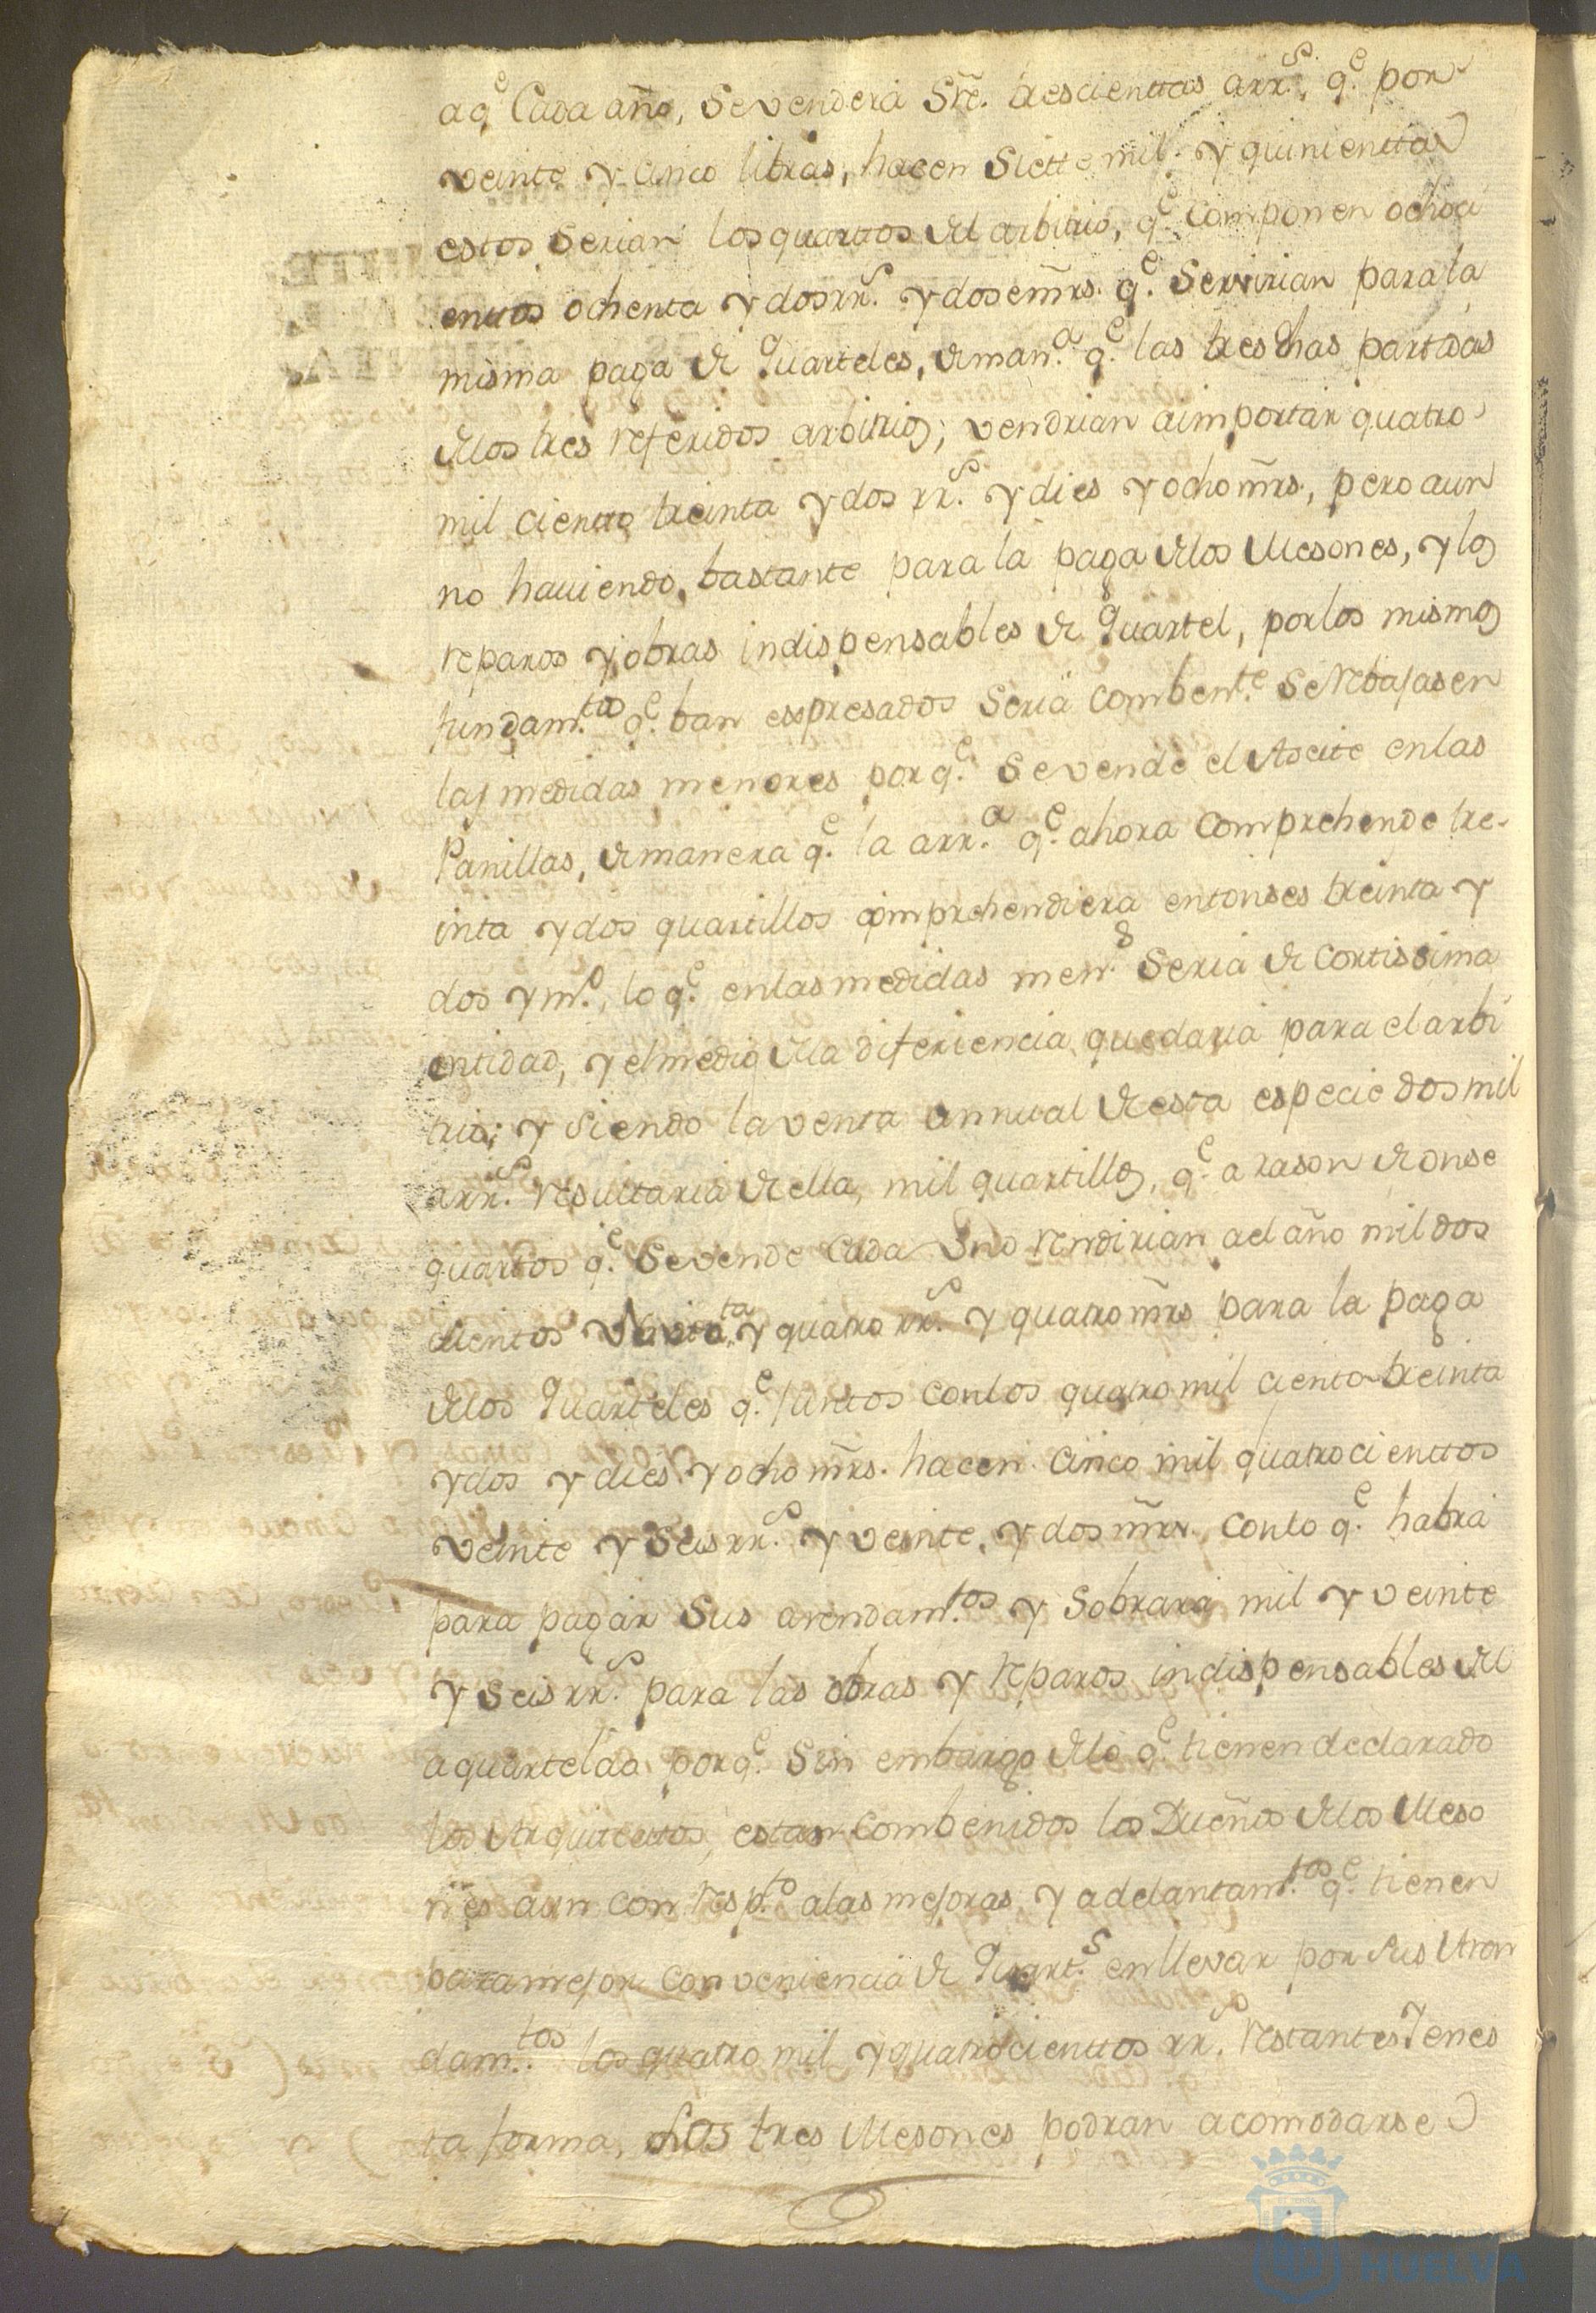 a q.e Cada año, Se venderá Sre. trescienttas arr.s, q.e por
veinte y cinco libras, hacen Siette mil y quinienttas
estos Serian los quarttos del arbitrio, q.e componen ochoci
enttos ochenta y dos rr.s y dos mrs. q.e Servirian para la
misma paga de Quarteles, de man.a q.e las tres dhas partidas
de los tres referidos arbitrios; vendrian a importar quatro
mil cientto treinta y dos rr.s y dies y ocho mrs., pero aun
no haviendo bastante para la paga de los Mesones, y los
reparos y obras indispensables de Quartel, por los mismos
fundam.tos q.e ban expresados Seria combent.e Se rebajasen
las medidas menores por q.e Se vende el Aseite en las
Panillas, de manera q.e la arr.a q.e ahora comprehende tre-
inta y dos quartillos comprehendiera entonses treinta y
dos y m.o, lo q.e en las medidas men.s Seria de Cortissima
entidad, y el medio de la diferiencia quedaria para el arbi
trio; y Siendo la venta annual de esta especie dos mil
arr.s resultaria de ella, mil quartillos, q.e a rason de onse
quartos q.e Se vende Cada Uno rendirian al año mil dos
cientos Noven.ta y quatro rr.s y quatro mrs para la paga
de los Quarteles q.e junttos con los quatro mil ciento treinta
y dos y dies y ocho mrs. hacen cinco mil quatrocienttos
veinte y Seis rr.s y veinte, y dos mrs., con lo q.e habra
para pagar Sus arendam.tos y Sobrará mil y veinte
y Seis rr.s para las obras y reparos indispensables del
aquartelaa por q.e Sin embargo de lo q.e tienen declarado
los Arquitecttos, estan combenidos los Dueños de los Meso
nes aun con resp.to a las mejoras, y adelantam.tos q.e tienen
para mejor conveniencia de Quart.s en llevar por Sus Arren
dam.tos los quatro mil y quatrocienttos rr.s restantes y en es
ta forma, Los tres Mesones podran acomodarse
HUELVA